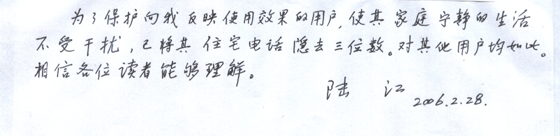 为了保护向我反映使用效果的用户,使其家庭宁静的生活
不受干扰,已将其住宅电话隐去三位数。对其他用户均如此。
相信各位读者能够理解。
陆 江
2006.2.28.